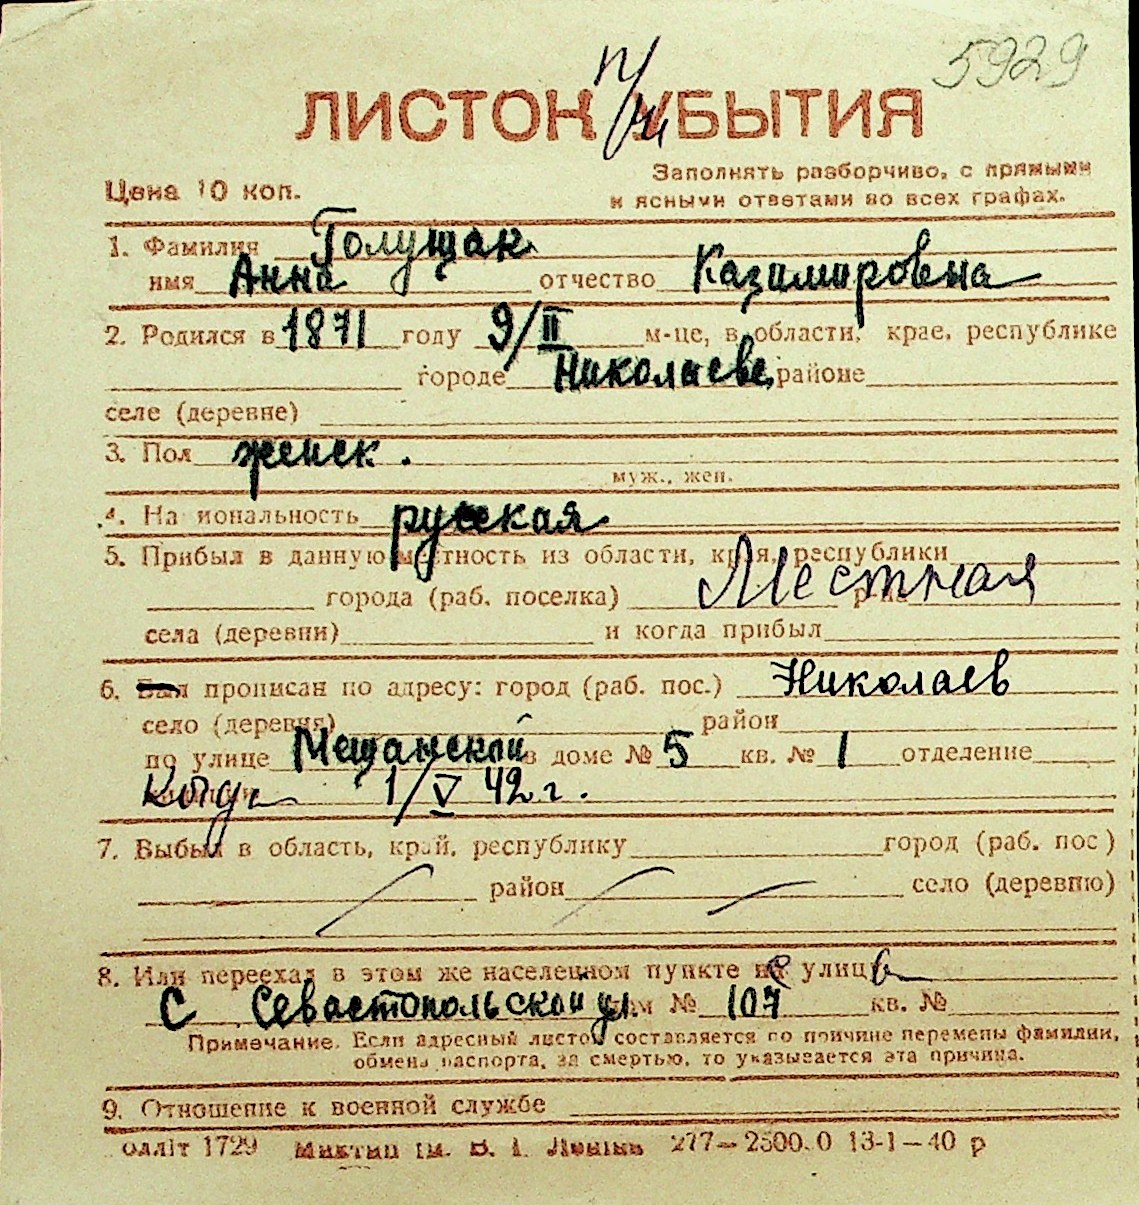 5929
п/
ЛИСТОК УБЫТИЯ
Цена 10 коп.
Заполнять разборчиво, с прямыми
и ясными ответами во всех графах.
1. Фамилия Голущак
имя Анна отчество Казимировна
2. Родился в 1871 году 9/II м-це, в области, крае, республике
городе Николаеве, районе
селе (деревне)
3. Пол женск.
муж., жен.
4. На иональность русская
5. Прибыл в данную местность из области, края, республики
города (раб. поселка) Местная
села (деревни) и когда прибыл
6. Был прописан по адресу: город (раб. пос.) Николаев
село (деревня) район
по улице Мещанской в доме № 5 кв. № 1 отделение
Когда 1/V 42 г.
7. Выбыл в область, край, республику город (раб. пос)
район село (деревню)
8. Или переехал в этом же населенном пункте улиц
С Севастопольской ул. дом № 107 кв. №
Примечание. Если адресный листок составляется по причине перемены фамилии,
обмена паспорта, за смертью, то указывается эта причина.
9. Отношение к военной службе
олліт 1729 Миктип ім. В. І. Леніна 277—2500.0 13-1—40 р